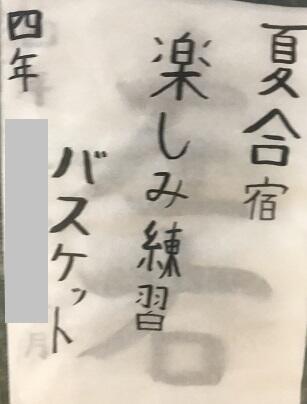 夏合宿
楽しみ練習
バスケット
四年